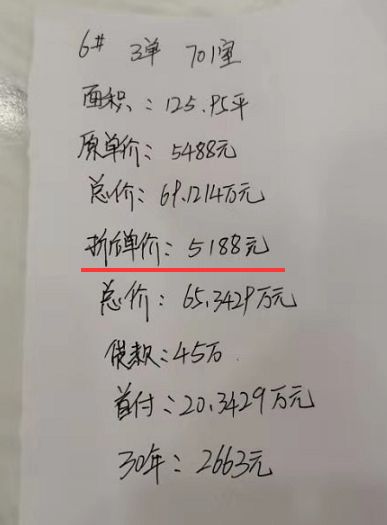 6# 3单 701室
面积：125.95平
原单价：5488元
总价：69.1214万元
折后单价：5188元
总价：65.3429万元
贷款：45万
首付：20.3429万元
30年：2663元